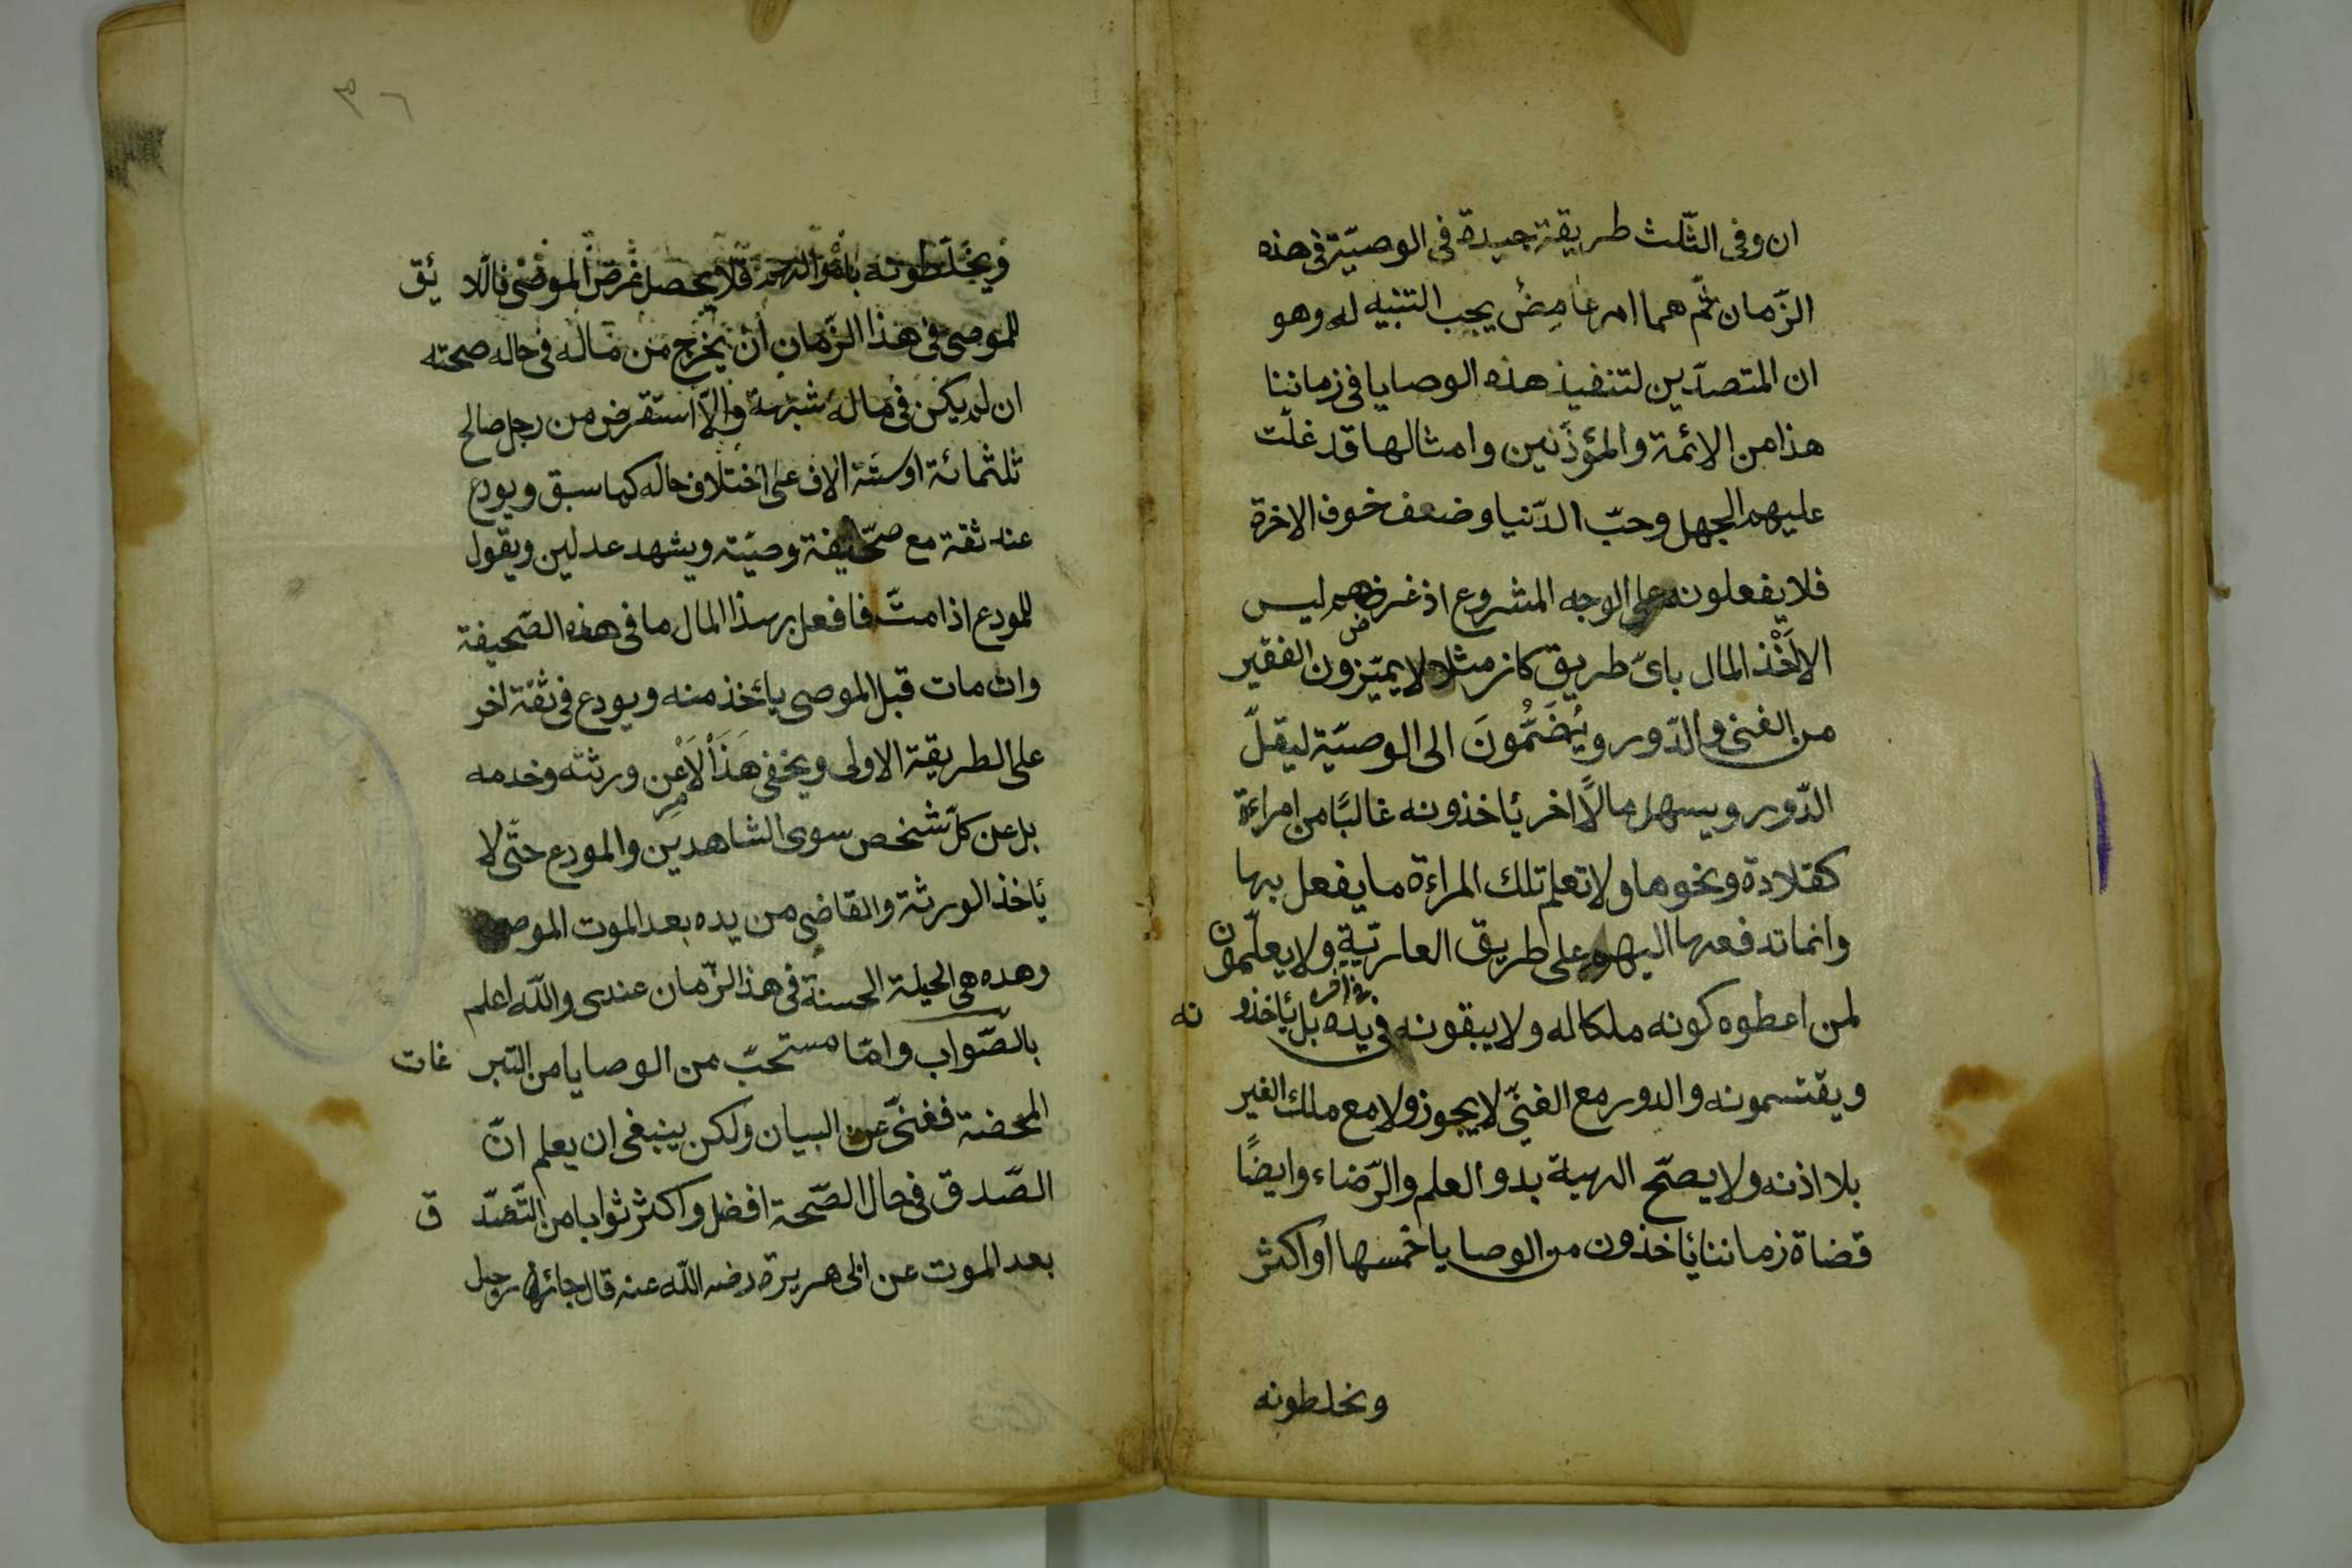 ان وفى الثّلث طريقة جيدة فى الوصيّة فى هذه
الزّمان ثمّ هما امر غامض يجب التنبيه له وهو
ان المتصدّين لتنفيذ هذه الوصايا فى زماننا
هذا من الائمة والمؤذّنين وامثالها قد غلّت
عليهم الجهل وحبّ الدّنيا وضعف خوف الاخرة
فلا يفعلونه على الوجه المشروع اذ غرضهم ليس
الا لَخْذ المال باىّ طريق كان مثلا لا يميّزون الفقير
من الغنى والدّور ويُضَمُّونَ الى الوصيّة ليقلّ
الدّور ويسهل مالًا اخر ئاخذونه غالبًا من امراءة
كقلادة ونحوها ولا تعلم تلك المراءة ما يفعل بها
وانما تدفعها اليهم على طريق العاريّة ولا يعلّمون
لمن اعطوه كونه ملكا له ولا يبقونه فى يده بل ئاخذونه
ويقتسمونه والدور مع الغنىّ لا يجوز ولا مع ملك الغير
بلا اذنه ولا يصحّ الهبة بدو العلم والرّضاء وايضًا
قضاة زماننا ئاخذون من الوصايا خمسها او اكثر
ونخلطونه
٣٦
ويخلّطونه فلا يحصل غرض الموصى فاللائق
للموصى فى هذا الزّمان ان يخرج من ماله فى حاله صحته
ان لم يكن فى ماله شبهة والّا استقرض من رجل صالح
ثلثمائة او ستّة الاف على اختلاف حاله كما سبق ويودع
عند ثقة مع صحيفة وصيّته ويشهد عدلين ويقول
للمودع اذا متّ فافعل بهذا المال ما فى هذه الصّحيفة
وان مات قبل الموصى يأخذ منه ويودع فى ثقة اخر
على الطريقة الاولى ويخفى هَذَا الَامْر عن ورثته وخدمه
بل عن كلّ شخص سوى الشاهدين والمودع حتّى لا
ئاخذ الورثة والقاضى من يده بعد الموت الموصى
وهده هى الحيلة الحسنة فى هذ الزّمان عندى واللّه اعلم
بالصّواب وامّا مستحبّ من الوصايا من التبرغات
المحضة فغنىّ عن البيان ولكن ينبغى ان يعلم انّ
الصّدق فى حال الصّحة افضل واكثر ثوابا من التّصدّق
بعد الموت عن ابى هريرة رضى اللّه عنه قال جاء رجل